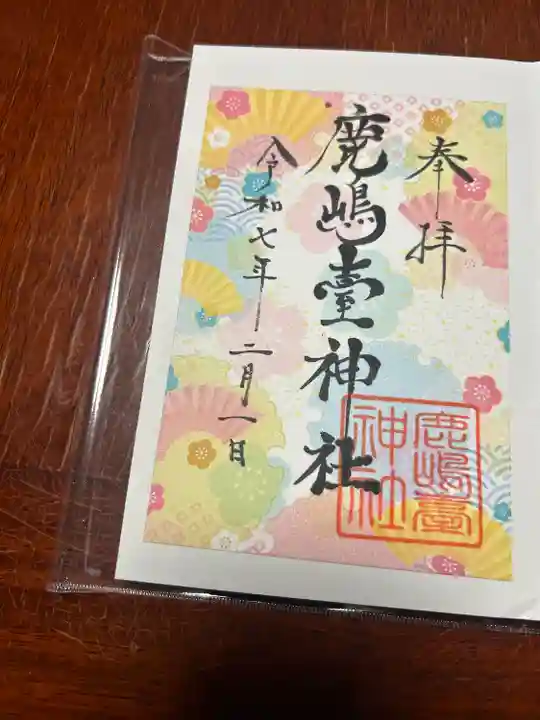 奉拝
鹿嶋臺神社
令和七年二月一日
鹿嶋臺
神社